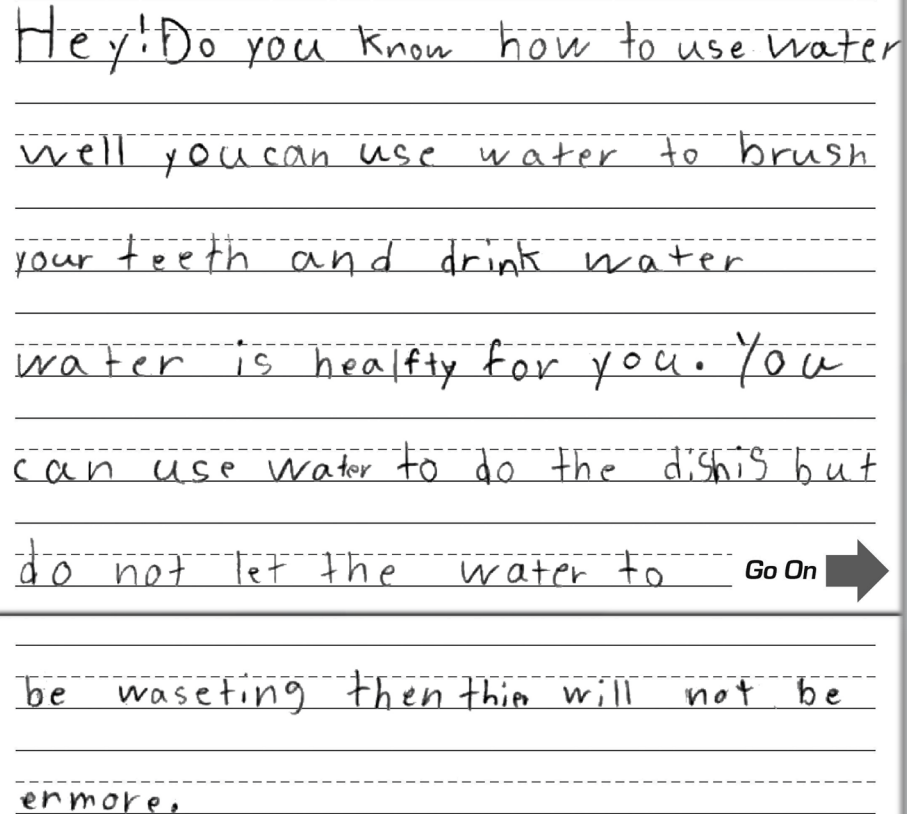 Hey! Do you know how to use water
well you can use water to brush
your teeth and drink water
water is healfty for you. You
can use water to do the dishis but
do not let the water to
Go On
be waseting then thier will not be
enmore.